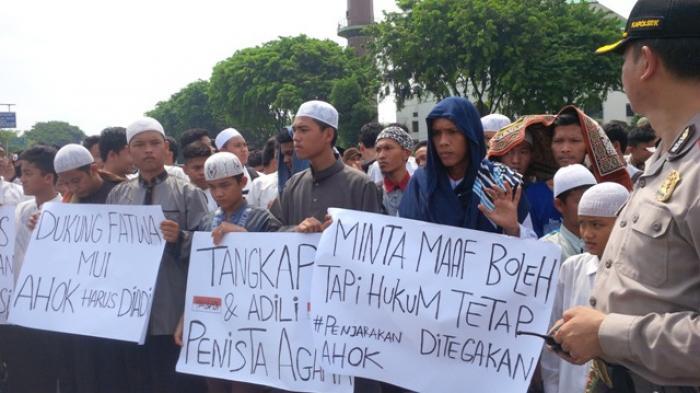 DUKUNG FATWA
MUI
AHOK HARUS DIADI
TANGKAP
& ADILI
PENISTA AGA
MINTA MAAF BOLEH
TAPI HUKUM TETAP
#PENJARAKAN DITEGAKAN
AHOK
KAPOLSEK